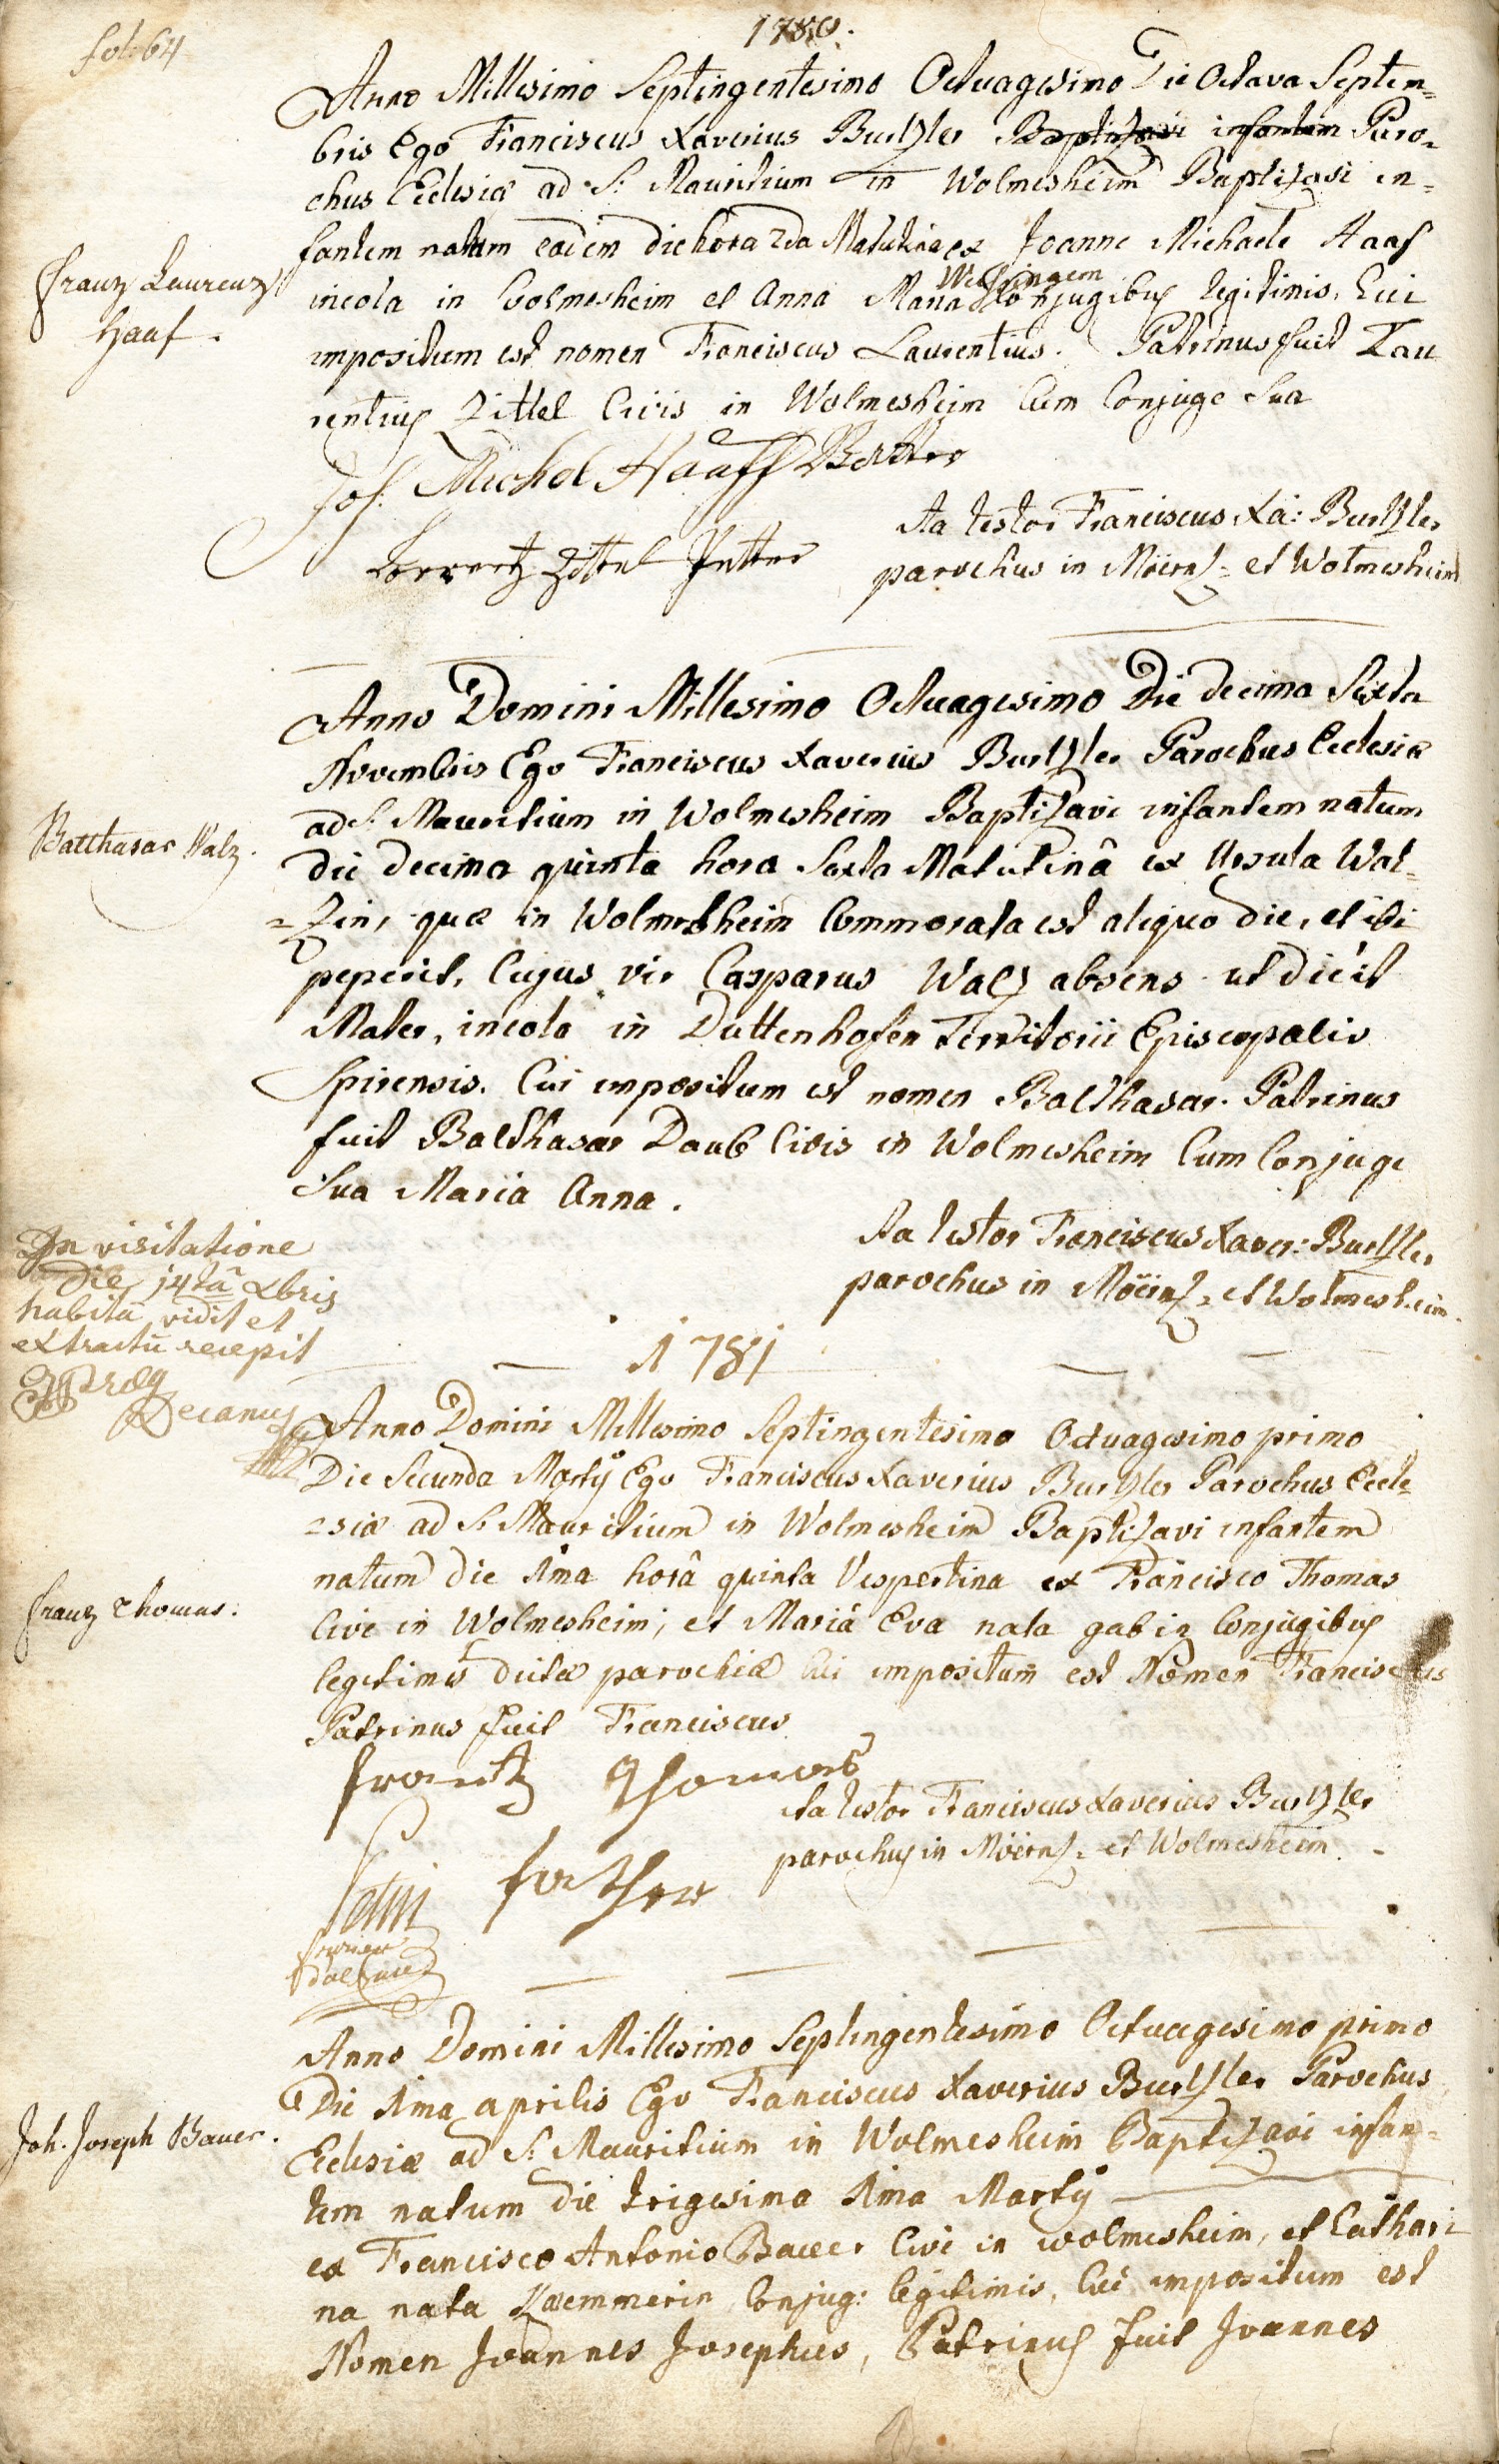 fol: 64
1780.
Anno Millesimo Septingentesimo Octuagesimo Die Octava Septem=
bris Ego Franciscus Xaverius Burtzler Baptizavi infantem Paro=
chus Eclesiæ ad S: Mauritium in Wolmesheim Baptizavi in=
fantem natum eadem die hora 2da Matutina ex Joanne Michaele Haaf
Franz Laurenz
Haaf.
incola in Volmesheim et Anna Maria Conjugibus legitimis, Cui
impositum est nomen Franciscus Laurentius. Patrinus fuit Lau
rentius Zittel Civis in Wolmesheim Cum Conjuge Sua
Joh. Michel Haaff Vatter
Ita testor Franciscus Xa: Burtzler
Lorrentz Zittel Petter
parochus in Mörz= et Wolmesheim
Anno Domini Millesimo Octuagesimo Die decima Sexta
Novembris Ego Franciscus Xaverius Burtzler Parochus Eclesiæ
ad S. Mauritium in Wolmesheim Baptizavi infantem natum
Balthasar Walz.
die decima quinta hora Sexta Matutinâ ex Ursula Wal=
=zin, quæ in Wolmesheim Commorata est aliquo die, et ibi
peperit, Cujus vir Casparus Walz absens ut dicit
Mater, incola in Duttenhofen Territorii Episcopalis
Spirensis. Cui impositum est nomen Balthasar. Patrinus
fuit Balthasar Daub Civis in Wolmesheim Cum Conjuge
Sua Maria Anna.
Ita testor Franciscus Xaver: Burtzler
parochus in Mörz= et Wolmesheim.
In visitatione
die 14tâ Xbris
habitâ vidit et
extractū recepit
Decanus
1781
Anno Domini Millesimo Septingentesimo Octuagesimo primo
Die Secunda Martij Ego Franciscus Xaverius Burtzler Parochus Eccle=
=siæ ad S. Mauritium in Wolmesheim Baptizavi infantem
natum die 1ma horâ quinta Vespertina ex Francisco Thomas
Franz Thomas.
Cive in Wolmesheim, et Mariâ Eva nata gabin Conjugibus
legitimis dictæ parochiæ Cui impositum est Nomen Franciscus
Patrinus fuit Franciscus
Frantz Thomas
Ita testor Franciscus Xaverius Burtzler
parochus in Mörz= et Wolmesheim.
Anno Domini Millesimo Septingentesimo Octuagesimo primo
Die 1ma aprilis Ego Franciscus Xaverius Burtzler Parochus
Joh. Joseph Bauer.
Eclesiæ ad S. Mauritium in Wolmesheim Baptizavi infan=
tem natum die trigesima 1ma Martij
ex Francisco Antonio Bauer Cive in wolmesheim, et Cathari
na nata Kæmmerin Conjug: legitimis, Cui impositum est
Nomen Joannes Josephus, Patrinus fuit Joannes